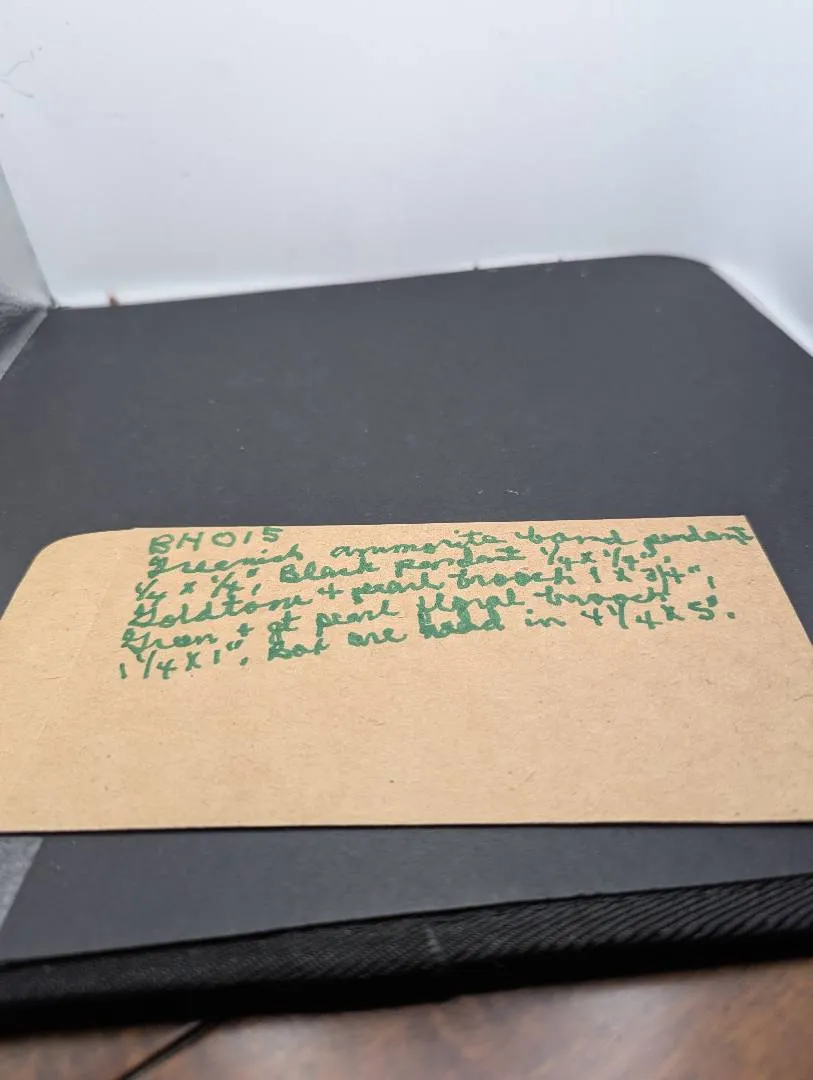 BH 015
Greenish ammonite band pendant
1/4 x 1/4", Black Pendant 1/4 x 1/4",
Goldtone + pearl brooch 1 x 3/4",
Green + gt pearl floral brooch
1 1/4 x 1". Box are in 4 1/4 x 5".